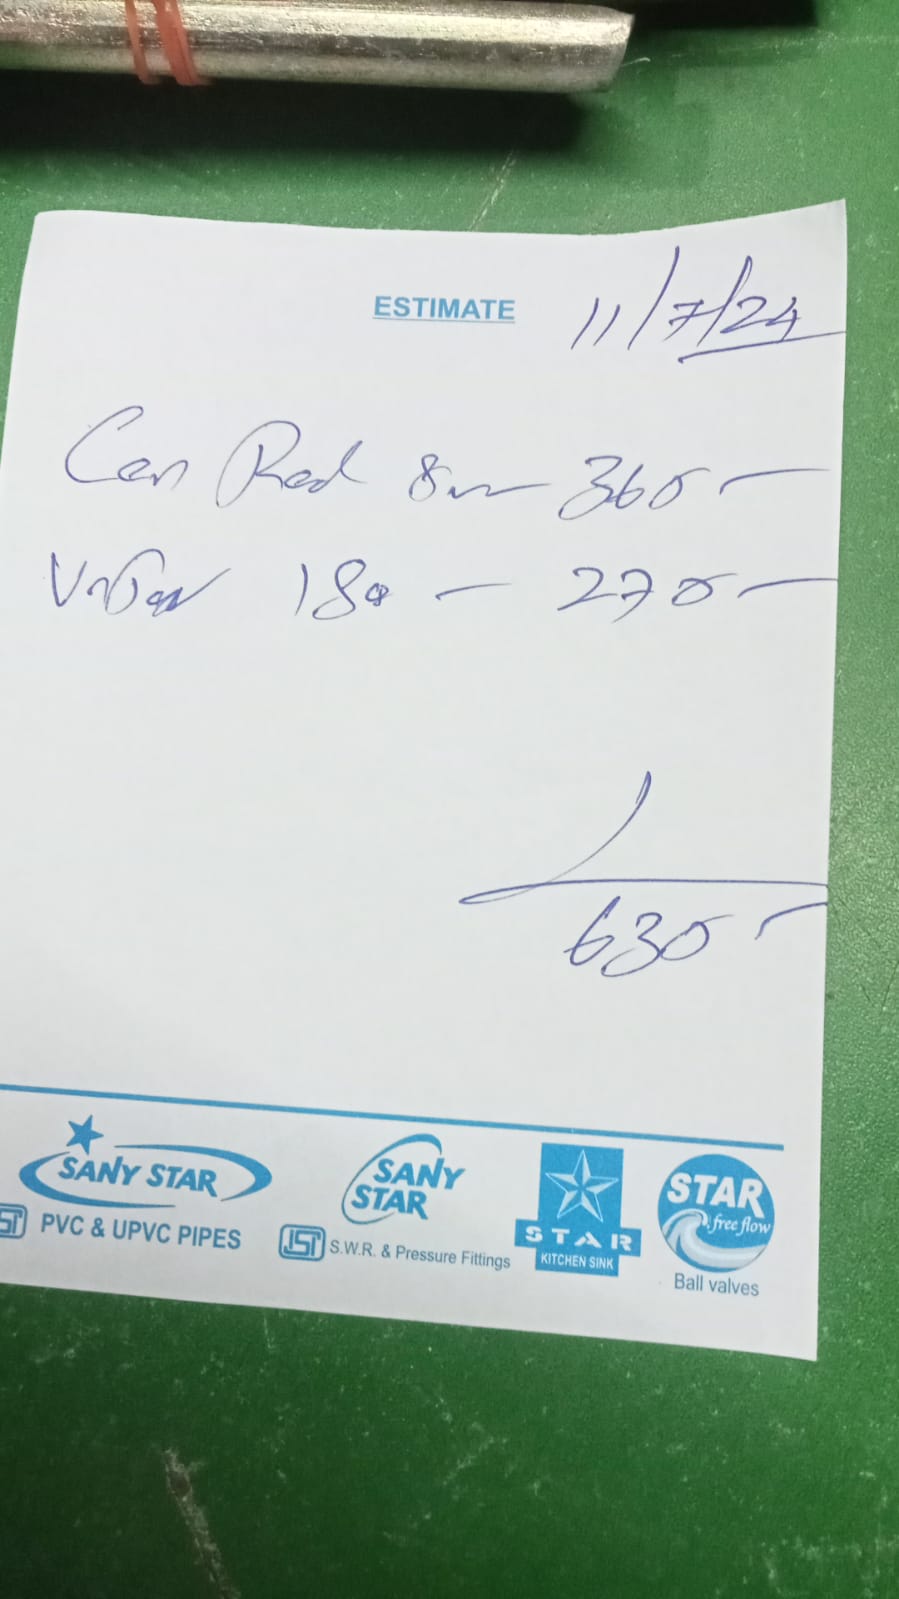 ESTIMATE 11/7/24
Can Rod 8m 360 -
180 - 270 -
630 -
SANY STAR
ISI PVC & UPVC PIPES
SANY STAR
ISI S.W.R. & Pressure Fittings
STAR
KITCHEN SINK
STAR
free flow
Ball valves